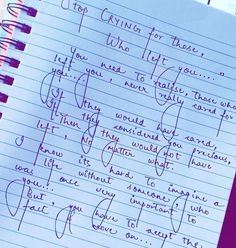 Stop CRYING for those,
Who left you.... "
You need to realise, those who
left you, never really cared for
you...
If they would have cared,
If they considered you precious,
Then they would not have
left, No matter what.
I know its hard to imagine a
life without someone, who
was once very important to
you...
But, you have to accept the
fact, & Move on...